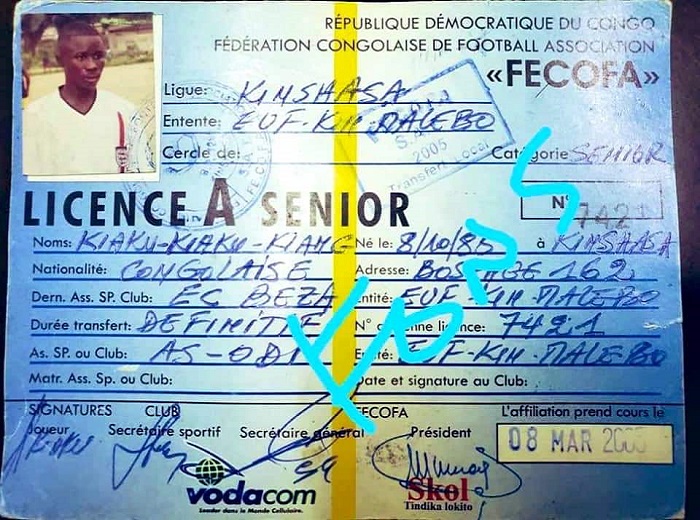 RÉPUBLIQUE DÉMOCRATIQUE DU CONGO
FÉDÉRATION CONGOLAISE DE FOOTBALL ASSOCIATION
«FECOFA»
Ligue: KINSHASA
Entente: EUF-KIN-MALEBO
Cercle de: Catégorie SENIOR
2005
Transfert Local
LICENCE A SENIOR N° 7421
Noms: KIAKU-KIAKU-KIANG Né le: 8/10/85 à KINSHASA
Nationalité: CONGOLAISE Adresse: 162
Dern. Ass. SP. Club: FC BEZA Entité: EUF-KIN-MALEBO
Durée transfert: DEFINITIF N° ancienne licence: 7421
As. SP. ou Club: AS-ODI Entité: EUF-KIN-MALEBO
Matr. Ass. Sp. ou Club: Date et signature au Club:
SIGNATURES CLUB FECOFA L'affiliation prend cours le
Joueur Secrétaire sportif Secrétaire général Président 08 MAR
vodacom
Leader dans le Monde Cellulaire.
Skol
Tindika lokito